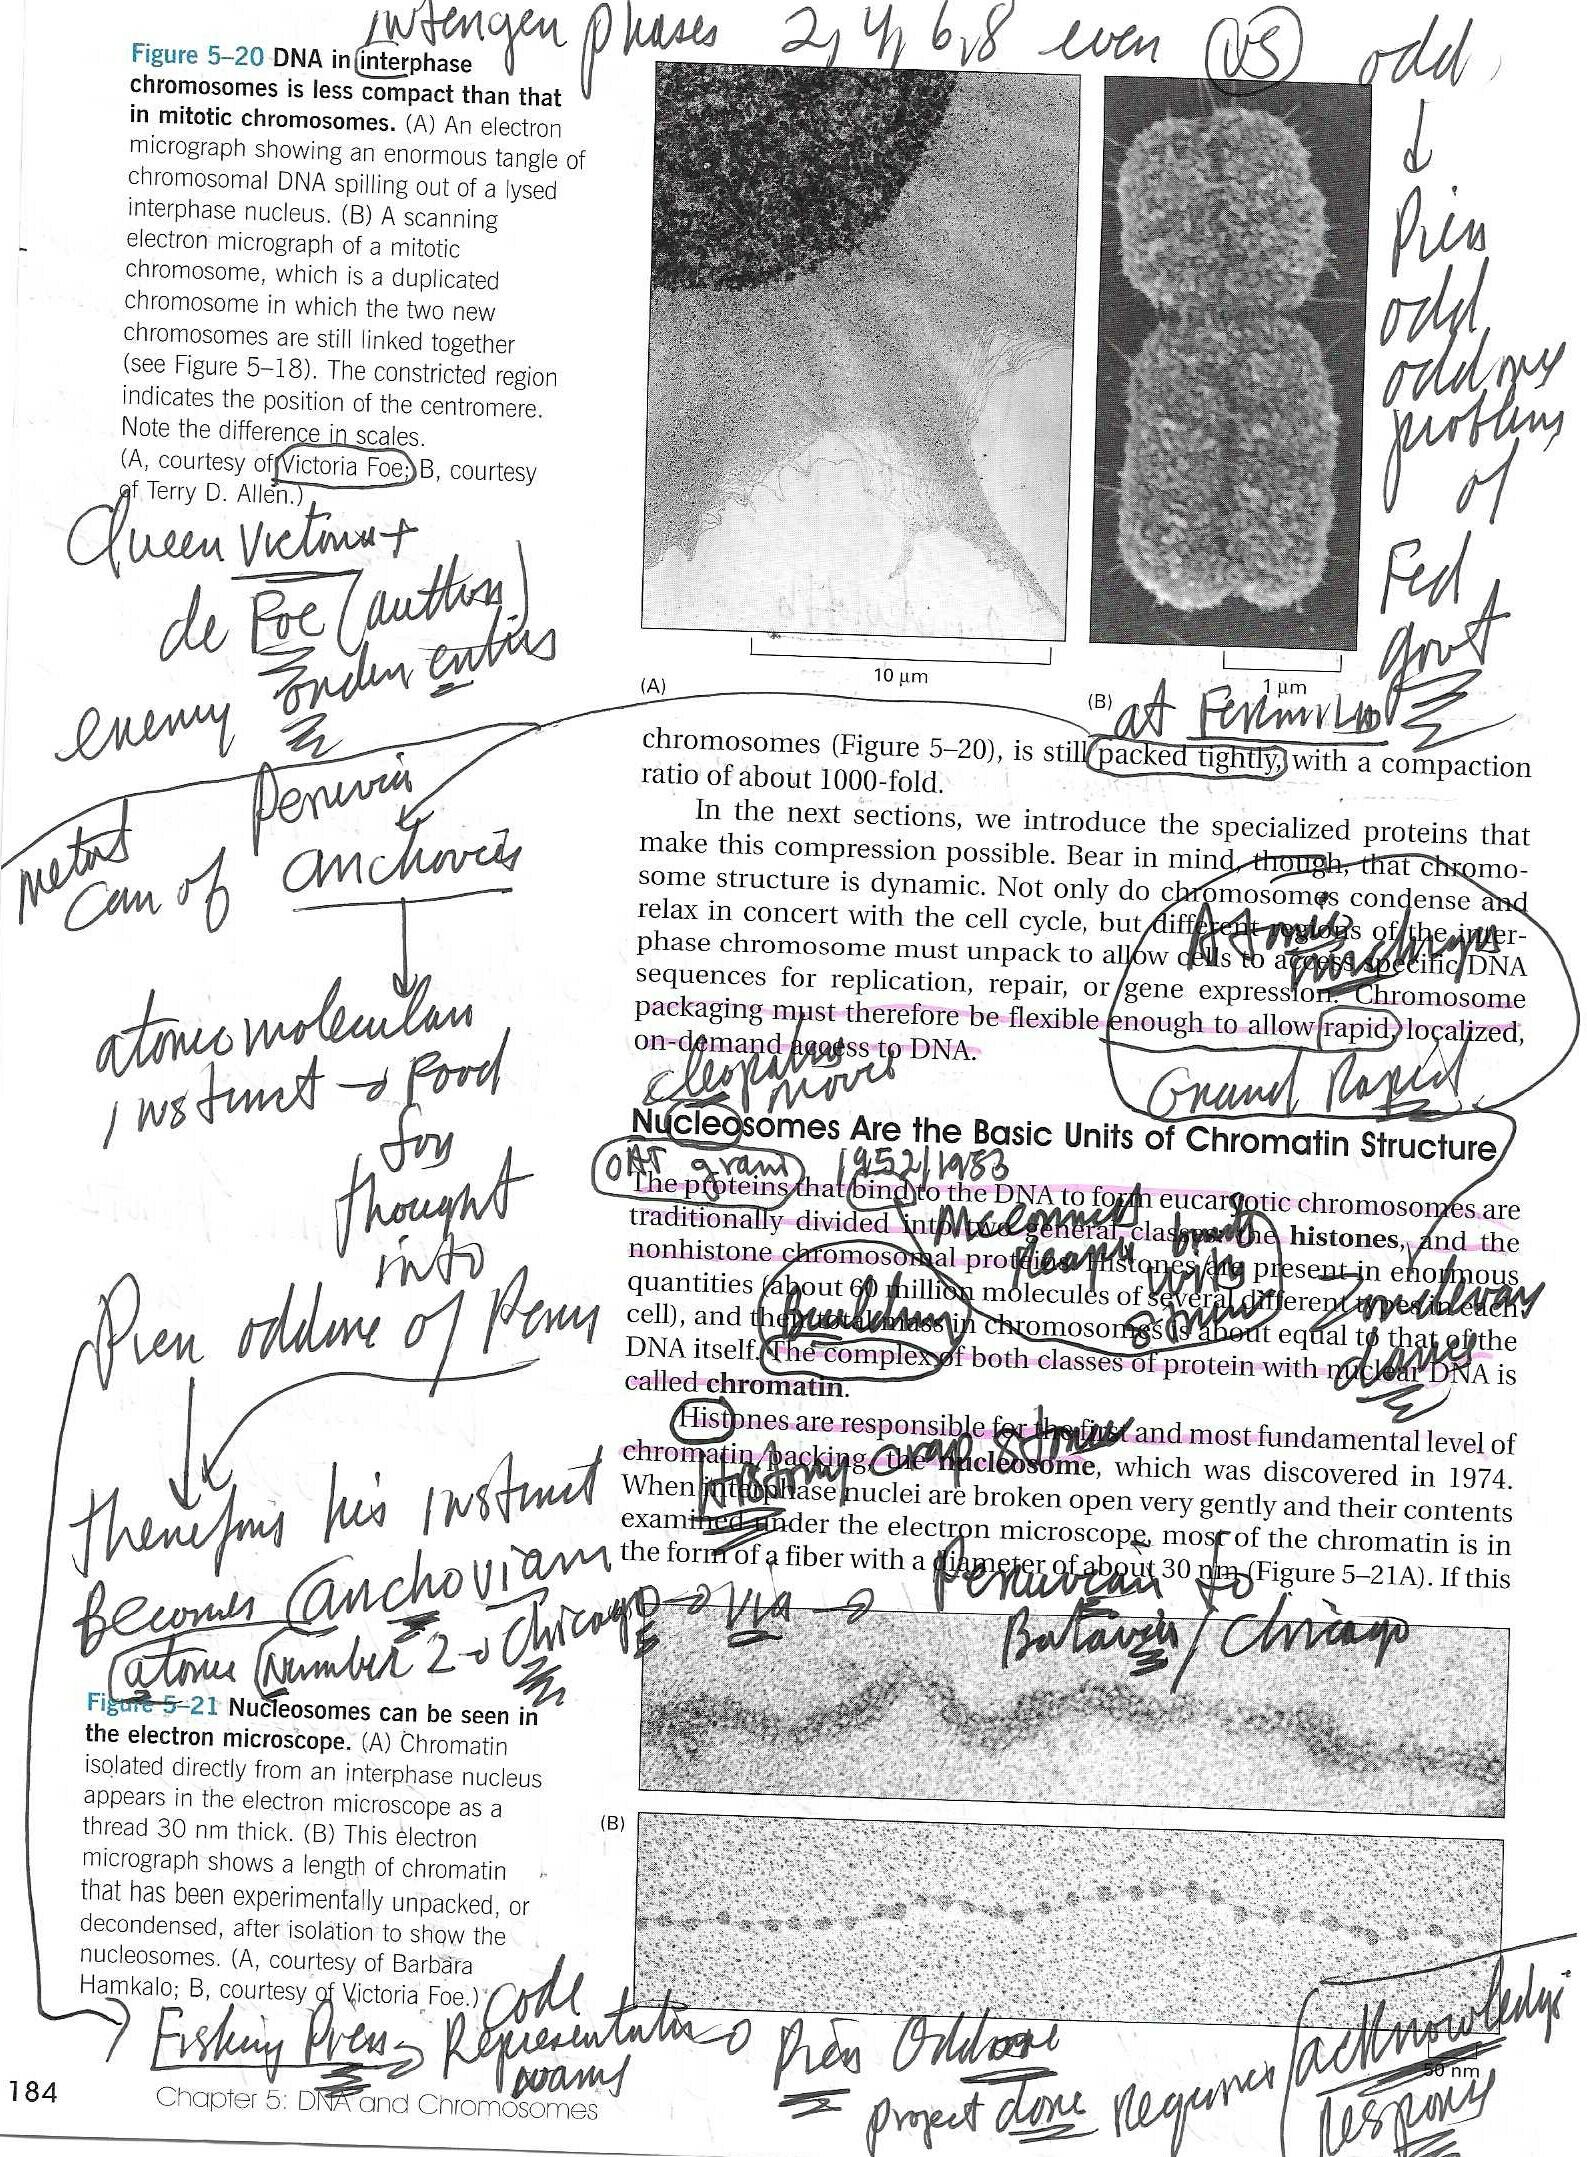 phases 2, 4, 6, 8 even VS odd
Figure 5–20 DNA in interphase
chromosomes is less compact than that
in mitotic chromosomes. (A) An electron
micrograph showing an enormous tangle of
chromosomal DNA spilling out of a lysed
interphase nucleus. (B) A scanning
electron micrograph of a mitotic
chromosome, which is a duplicated
chromosome in which the two new
chromosomes are still linked together
(see Figure 5–18). The constricted region
indicates the position of the centromere.
Note the difference in scales.
(A, courtesy of Victoria Foe; B, courtesy
of Terry D. Allen.)
Queen Victoria +
de Foe (author)
enemy order entities
odd
problems
of
Fed
govt
at Fermilab
(A)
10 µm
(B)
1 µm
metal
can of
anchovies
atomic molecular
instinct → Food
for
thought
into
Pier oddone of Peru
therefore his instinct
becomes anchovian
atomic number 2 → Chicago → VIA → Peruvian to
Batavia / Chicago
chromosomes (Figure 5–20), is still packed tightly, with a compaction
ratio of about 1000-fold.
In the next sections, we introduce the specialized proteins that
make this compression possible. Bear in mind, though, that chromo-
some structure is dynamic. Not only do chromosomes condense and
relax in concert with the cell cycle, but different regions of the inter-
phase chromosome must unpack to allow cells to access specific DNA
sequences for replication, repair, or gene expression. Chromosome
packaging must therefore be flexible enough to allow rapid, localized,
on-demand access to DNA.
Grand Rapid
Cleopatra
movie
Nucleosomes Are the Basic Units of Chromatin Structure
1952/1983
The proteins that bind to the DNA to form eucaryotic chromosomes are
traditionally divided into two general classes: the histones, and the
nonhistone chromosomal proteins. Histones are present in enormous
quantities (about 60 million molecules of several different types in each
cell), and their total mass in chromosomes is about equal to that of the
DNA itself. The complex of both classes of protein with nuclear DNA is
called chromatin.
Histones are responsible for the first and most fundamental level of
chromatin packing, the nucleosome, which was discovered in 1974.
When interphase nuclei are broken open very gently and their contents
examined under the electron microscope, most of the chromatin is in
the form of a fiber with a diameter of about 30 nm (Figure 5–21A). If this
Figure 5–21 Nucleosomes can be seen in
the electron microscope. (A) Chromatin
isolated directly from an interphase nucleus
appears in the electron microscope as a
thread 30 nm thick. (B) This electron
micrograph shows a length of chromatin
that has been experimentally unpacked, or
decondensed, after isolation to show the
nucleosomes. (A, courtesy of Barbara
Hamkalo; B, courtesy of Victoria Foe.)
(B)
50 nm
code
Pier Oddone
project done requires acknowledge
response
184
Chapter 5: DNA and Chromosomes